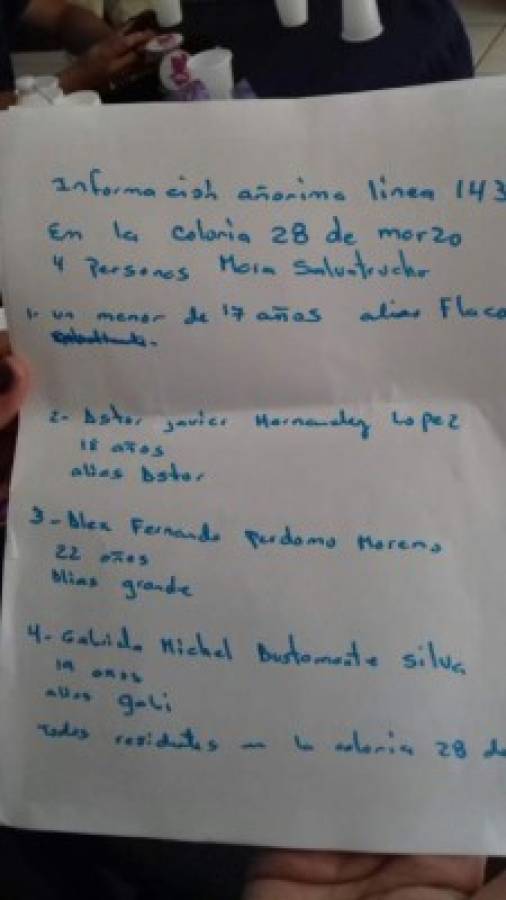 Información añonima linea 143
En la colonia 28 de marzo
4 Personas Mara Salvatrucha
1- un menor de 17 años alias Flaco
2- Astor javier Hernandez Lopez
18 años
alias Astor
3- Alex Fernando Perdomo Moreno
22 años
Alias grande
4- Michel Bustamante silva
19 años
alias gali
todos residentes en la colonia 28 de